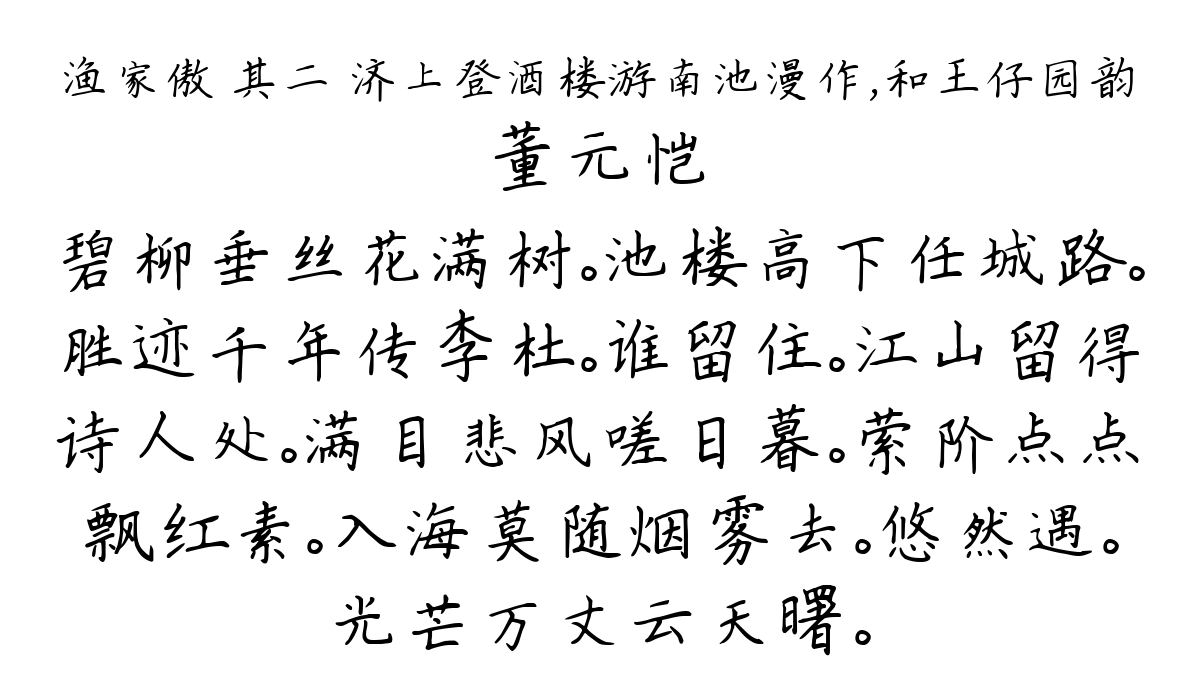 渔家傲 其二 济上登酒楼游南池漫作,和王仔园韵
董元恺
碧柳垂丝花满树。池楼高下任城路。
胜迹千年传李杜。谁留住。江山留得
诗人处。满目悲风嗟日暮。萦阶点点
飘红素。入海莫随烟雾去。悠然遇。
光芒万丈云天曙。